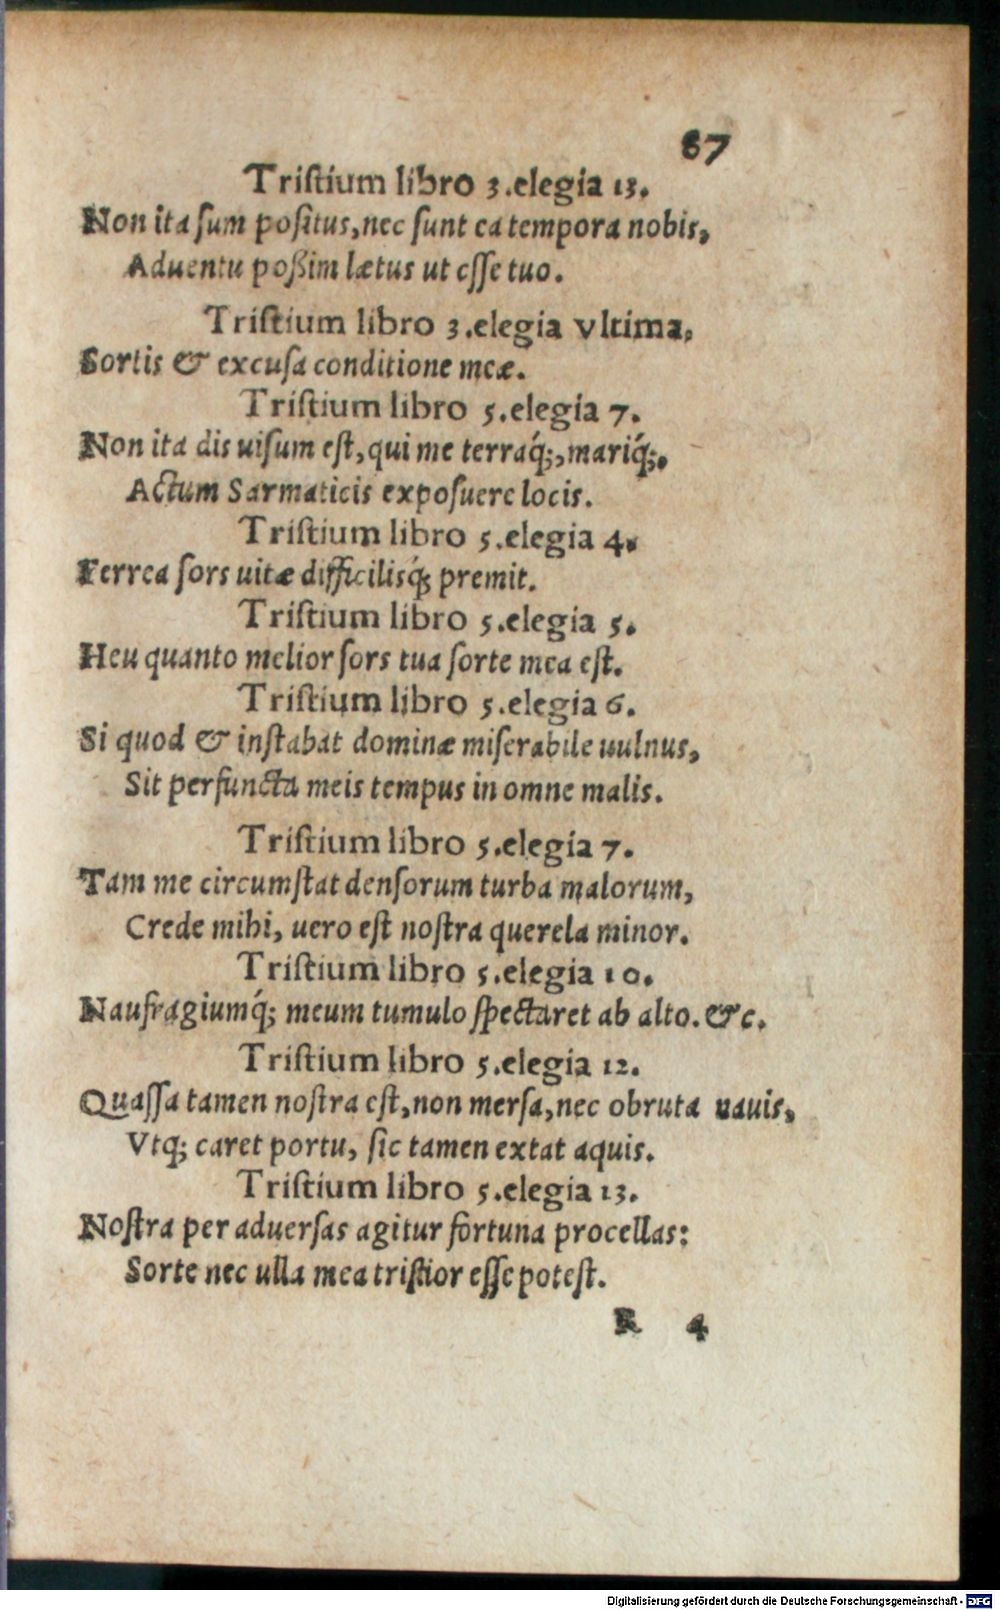 87
Tristium libro 3.elegia 13.
Non ita sum positus,nec sunt ea tempora nobis,
Aduentu poßim lætus ut esse tuo.
Tristium libro 3.elegia vltima,
Sortis & excusa conditione meæ.
Tristium libro 5.elegia 7.
Non ita dis uisum est,qui me terraq́;,mariq́;,
Actum Sarmaticis exposuere locis.
Tristium libro 5.elegia 4.
Ferrea sors uitæ difficilisq́; premit.
Tristium libro 5.elegia 5.
Heu quanto melior sors tua sorte mea est.
Tristium libro 5.elegia 6.
Si quod & instabat dominæ miserabile uulnus,
Sit perfuncta meis tempus in omne malis.
Tristium libro 5.elegia 7.
Tam me circumstat densorum turba malorum,
Crede mihi, uero est nostra querela minor.
Tristium libro 5.elegia 10.
Naufragiumq́; meum tumulo spectaret ab alto.&c.
Tristium libro 5.elegia 12.
Quassa tamen nostra est,non mersa,nec obruta nauis,
Vtq; caret portu, sic tamen extat aquis.
Tristium libro 5.elegia 13.
Nostra per aduersas agitur fortuna procellas:
Sorte nec ulla mea tristior esse potest.
R 4
Digitalisierung gefördert durch die Deutsche Forschungsgemeinschaft - DFG